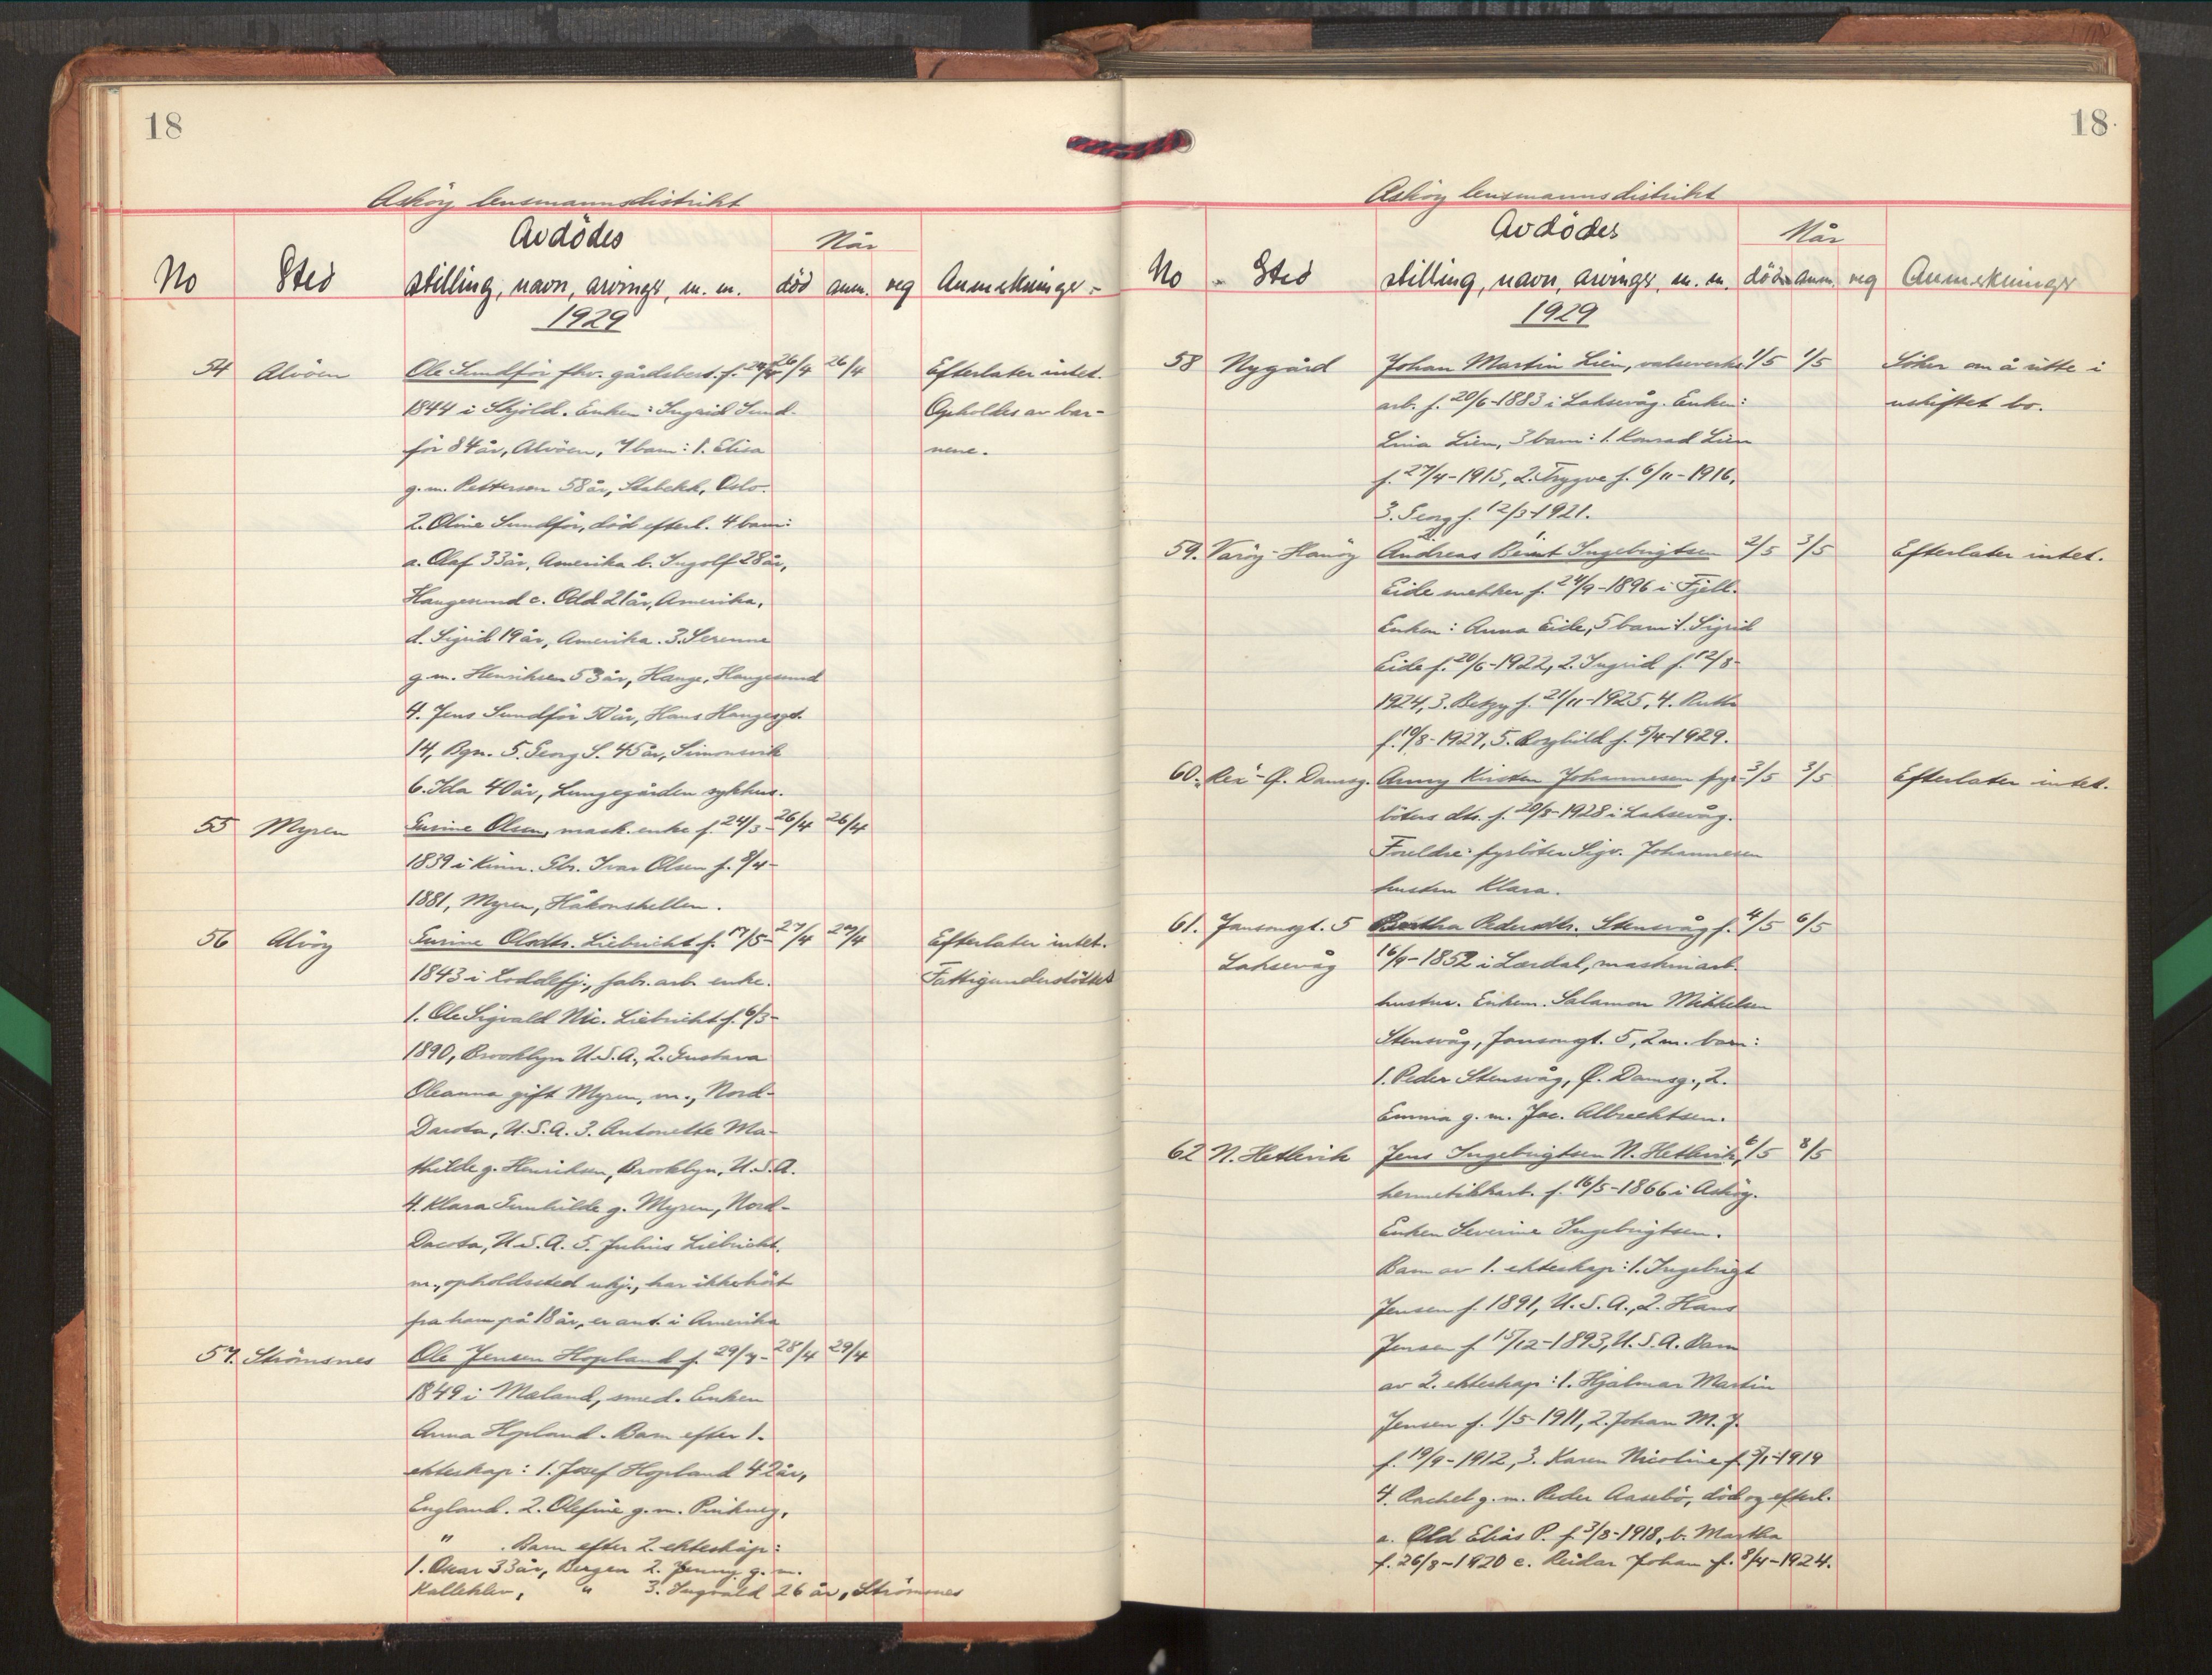 18
Askøy lensmannsdistrikt
Avdödes
Når
No Sted stilling, navn, arvinger, m. m. död anm. reg Anmerkninger
1929
54 Alvöen Ole Sundför fhv. gårdsbest. f. 26/4 26/4 Efterlater intet.
1844 i Skjöld. Enken: Ingrid Sund- Opholdes av bar-
för 84 år, Alvöen, 7 barn: 1. Elisa nene.
g.m. Pettersen 58 år, Stabekk, Oslo.
2. Oline Sundför, död efterl. 4 barn:
a. Olaf 33 år, Amerika b. Ingolf 28 år,
Haugesund c. Odd 21 år, Amerika,
d. Sigrid 19 år, Amerika. 3. Serenne
g.m. Henriksen 53 år, Hauge, Haugesund
4. Jens Sundför 50 år, Hans Haugesgt.
14, Bgn. 5. Georg S. 45 år, Simonsvik
6. Ida 40 år, Lungegården sykhus.
55 Myren Gurine Olsen, mask. enke f. 24/3- 26/4 26/4
1839 i Kinn. Sbr. Ivar Olsen f. 9/4-
1881, Myren, Håkonshellen.
56 Alvöy Gurine Olsdtr. Liebricht f. 17/5- 27/4 29/4 Efterlater intet.
1843 i Loddefj., fabr. arb. enke. Fattigunderstöttet
1. Ole Sigvald Nic. Liebricht f. 6/3-
1890, Brooklyn U.S.A., 2. Gustava
Oleanna gift Myren, m., Nord-
Dacota, U.S.A. 3. Antonette Ma-
thilde g. Henriksen, Brooklyn, U.S.A.
4. Klara Gunhilde g. Myren, Nord-
Dacota, U.S.A. 5. Julius Liebricht,
m., opholdssted ukj., har ikke hört
fra ham på 18 år, er ant. i Amerika
57. Strömsnes Ole Jensen Hopland f. 29/7- 28/4 29/4
1849 i Mæland, smed. Enken
Anna Hopland. Barn efter 1.
ekteskap: 1. Josef Hopland 42 år,
England. 2. Olefine g.m. Pinkney,
" . Barn efter 2. ekteskap:
1. Oscar 33 år, Bergen 2. Jenny g. m.
Kalleklev, " 3. Ingvald 26 år, Strömsnes
18.
Askøy lensmannsdistrikt
Avdödes
Når
No Sted stilling, navn, arvinger, m. m. död anm. reg Anmerkninger
1929
58 Nygård Johan Martin Lien, valseverks 1/5 1/5 Söker om å sitte i
arb. f. 20/6-1883 i Laksevåg. Enken: uskiftet bo.
Lina Lien, 3 barn: 1. Konrad Lien
f. 27/4-1915, 2. Trygve f. 6/11-1916,
3. Georg f. 12/3-1921.
59. Varöy-Hanöy Andreas Berent Ingebrigtsen 2/5 3/5 Efterlater intet.
Eide snekker f. 24/9-1896 i Fjell.
Enken: Anna Eide, 5 barn: 1. Sigrid
Eide f. 20/6-1922, 2. Ingrid f. 12/8-
1924, 3. Betzy f. 21/11-1925, 4. Ruth
f. 10/8-1927, 5. Borghild f. 5/4-1929.
60. "Rex"-Ø. Damsg. Anny Kirsten Johannesen fyr- 3/5 3/5 Efterlater intet.
böters dtr. f. 20/8-1928 i Laksevåg.
Foreldre: fyrböter Sigv. Johannesen
hustru Klara.
61. Jansonsgt. 5 Bertha Pedersdtr. Stensvåg f. 4/5 6/5
Laksevåg 16/9-1852 i Lærdal, maskinarb.
hustru. Enkem. Salamon Mikkelsen
Stensvåg, Jansongt. 5, 2 m. barn:
1. Peder Stensvåg, Ø. Damsg., 2.
Emma g. m. Jac. Albrechtsen.
62 N. Hetlevik Jens Ingebrigtsen N. Hetlevik, 6/5 8/5
hermetikkarb. f. 16/5-1866 i Askøy.
Enken Severine Ingebrigtsen.
Barn av 1. ekteskap: 1. Ingebrigt
Jensen f. 1891, U.S.A., 2. Hans
Jensen f. 15/12-1893, U.S.A. Barn
av 2. ekteskap: 1. Hjalmar Martin
Jensen f. 1/5-1911, 2. Johan M. J.
f. 19/9-1912, 3. Karen Nicoline f. 7/1-1919
4. Rachel g. m. Peder Aasebö, död og efterl.
a. Odd Elias P. f. 3/8-1918, b. Martha
f. 26/8-1920 c. Reidar Johan f. 8/4-1924.